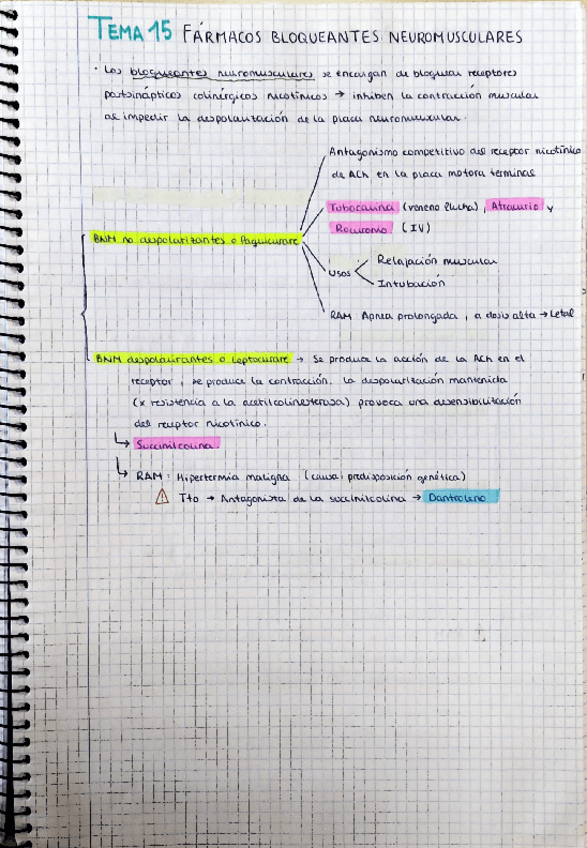 TEMA 15 FÁRMACOS BLOQUEANTES NEUROMUSCULARES
· Los bloqueantes neuromusculares se encargan de bloquear receptores
postsinápticos colinérgicos nicotínicos → inhiben la contracción muscular
al impedir la despolarización de la placa neuromuscular.
Antagonismo competitivo del receptor nicotínico
de ACh en la placa motora terminal
Tubocurarina (veneno flecha), Atracurio y
Rocuronio (IV)
BNM no despolarizantes o Paquicurare
Usos
Relajación muscular
Intubación
RAM Apnea prolongada, a dosis alta → Letal
BNM despolarizantes o leptocurare → Se produce la acción de la ACh en el
receptor, se produce la contracción. La despolarización mantenida
(x resistencia a la acetilcolinesterasa) provoca una desensibilización
del receptor nicotínico.
↳ Succinilcolina.
↳ RAM: Hipertermia maligna (causa: predisposición genética)
⚠ Tto → Antagonista de la succinilcolina → Dantroleno